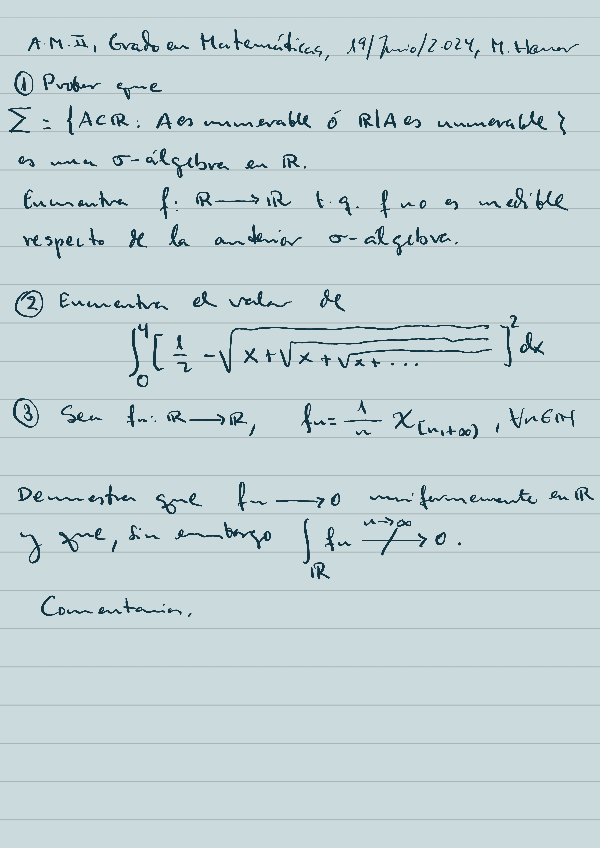 A.M.II, Grado en Matemáticas, 19/Junio/2024,
① Probar que
Σ = {A⊂ℝ : A es numerable ó ℝ\A es numerable}
es una σ-álgebra en ℝ.
Encuentra f: ℝ → ℝ t.q. f no es medible
respecto de la anterior σ-álgebra.
② Encuentra el valor de
∫₀⁴ [1/2 - √(x+√(x+√(x+...)))]² dx
③ Sea fn: ℝ → ℝ, fn = 1/n χ[n,+∞), ∀n∈ℕ
Demuestra que fn → 0 uniformemente en ℝ
y que, sin embargo ∫_ℝ fn ↛ 0. n→∞
Comentarios.